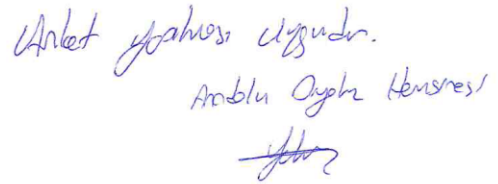 Anket yapılması uygundur.
Anadolu Diyaliz Hemşiresi